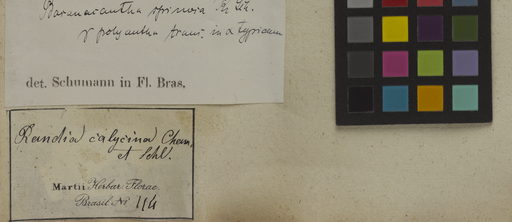 Basanacantha spinosa
γ polyantha trans. in α typicam
det. Schumann in Fl. Bras,
Randia calycina Cham.
et Schl.
Martii Herbar. Florae
Brasil. No 114